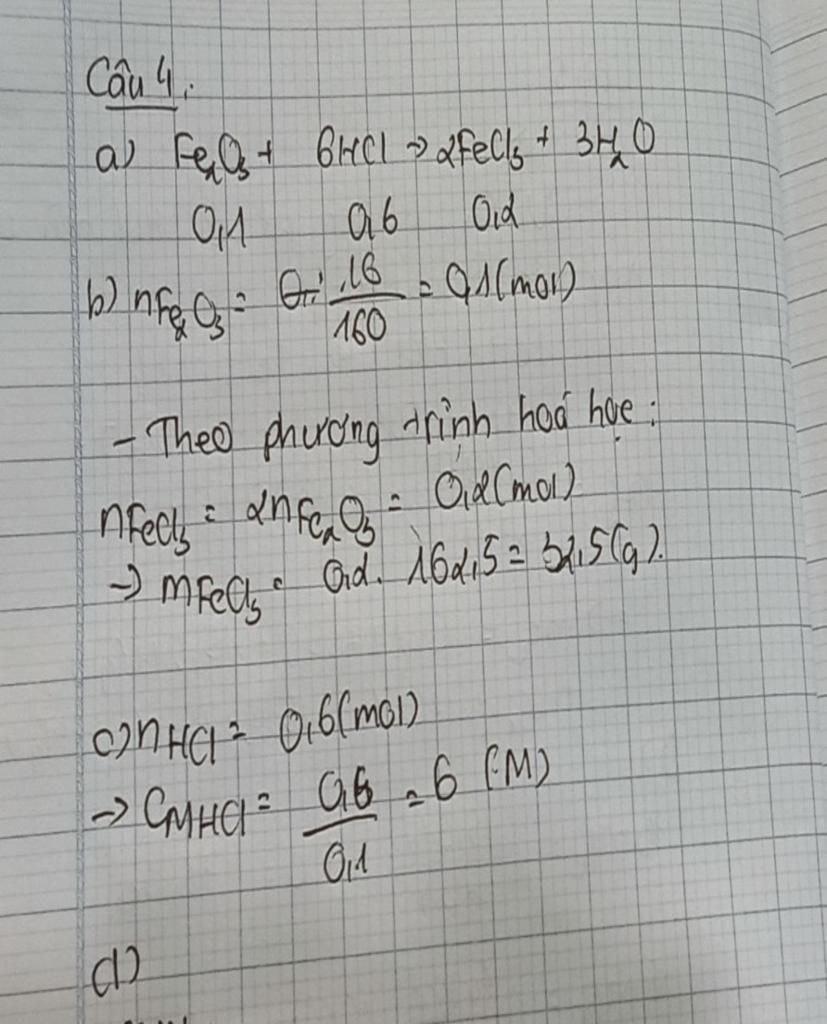 Câu 4:
a) Fe₂O₃ + 6HCl → 2FeCl₃ + 3H₂O
0,1 0,6 0,2
b) nFe₂O₃ = 16/160 = 0,1 (mol)
- Theo phương trình hoá học:
nFeCl₃ = 2nFe₂O₃ = 0,2 (mol)
→ mFeCl₃ = 0,2. 162,5 = 32,5 (g).
c) nHCl = 0,6 (mol)
→ CMHCl = 0,6/0,1 = 6 (M)
d)